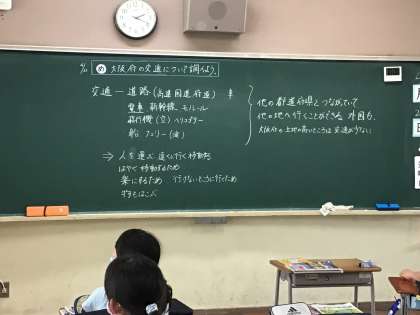 め 大阪府の交通について調べよう。
交通 ― 道路 (高速 国道 府道) 車
電車 新幹線、モノレール
飛行機 (空) ヘリコプター
船 フェリー (海)
他の都道府県とつながっていて
他の地へ行くことができる 外国も
大阪府の土地の高いところは 交通が少ない
⇒ 人を運ぶ 遠くに行く移動
はやく 移動するため
楽にするため 行けないところに行くため